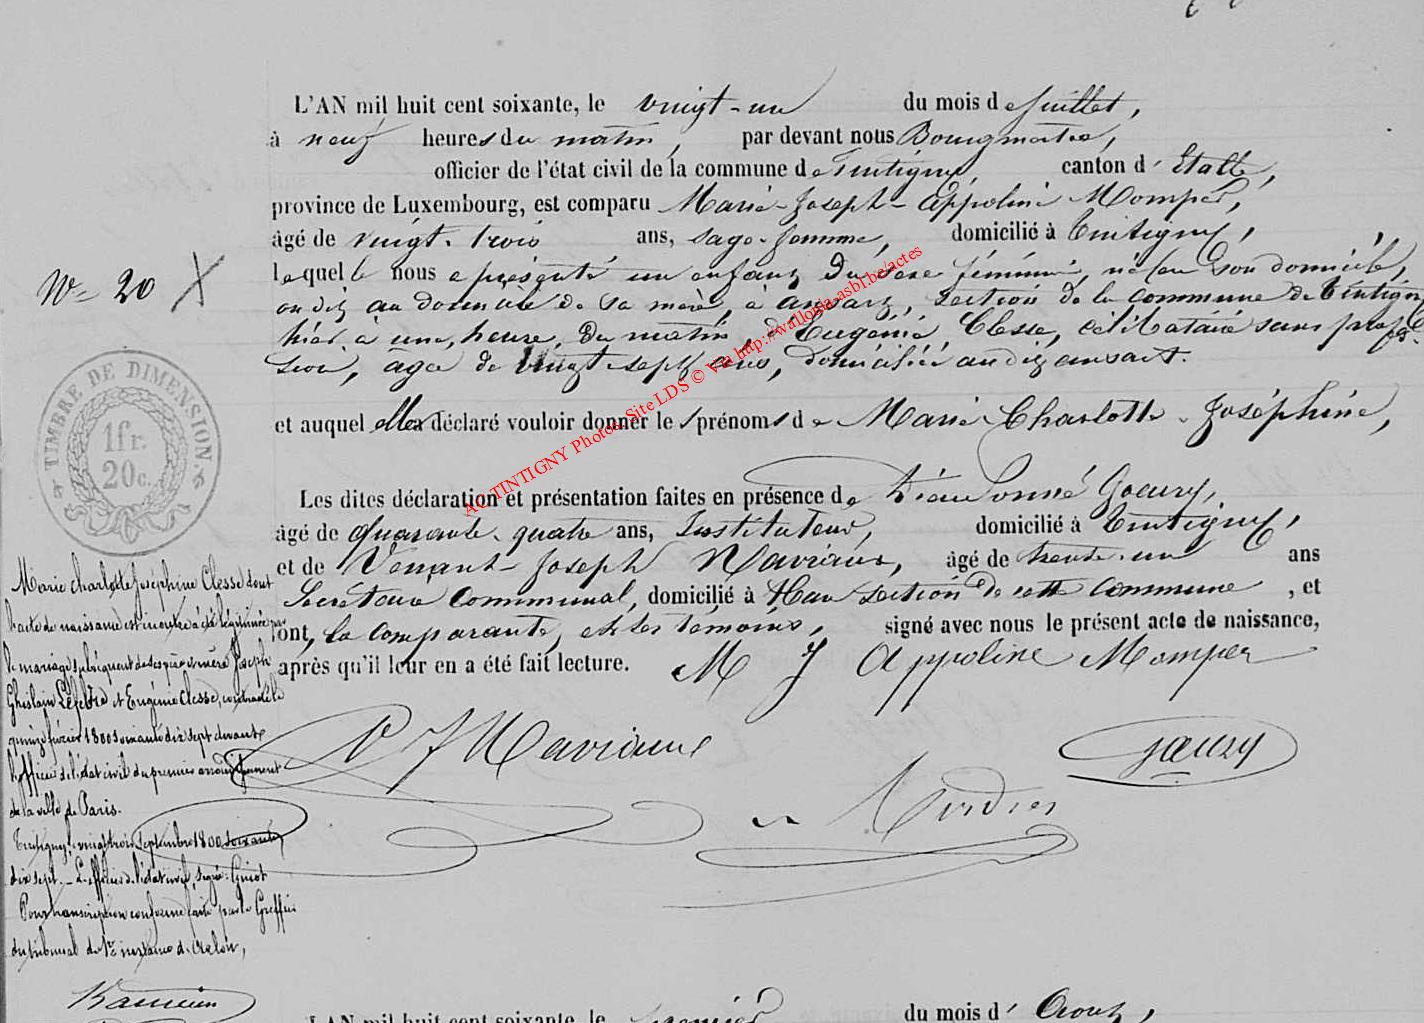 L'AN mil huit cent soixante, le vingt-un du mois de Juillet,
à neuf heures du matin, par devant nous Bourgmestre,
officier de l'état civil de la commune de Tintigny, canton d'Etalle,
province de Luxembourg, est comparu Marie-Joseph-Appoline Momper,
âgé de vingt-trois ans, sage-femme, domicilié à Tintigny,
lequel le nous a présenté un enfant du sexe féminin, né en son domicile,
au domicile de sa mère, à ansart, section de la commune de Tintigny
hier à une heure du matin, d'Eugénie Clesse, célibataire sans profes-
sion, agée de vingt-sept ans, domiciliée audit ansart.
et auquel elle a déclaré vouloir donner les prénoms de Marie-Charlotte-Joséphine,
Les dites déclaration et présentation faites en présence de Dieudonné Goeury,
âgé de quarante-quatre ans, Instituteur, domicilié à Tintigny,
et de Venant-Joseph Maviaux, âgé de trente-un ans
Secrétaire Communal, domicilié à Han section de cette commune, et
ont, la comparante, et les témoins, signé avec nous le présent acte de naissance,
après qu'il leur en a été fait lecture. M J Appoline Momper
V J Goeury
N° 20 X
TIMBRE DE DIMENSION
1 fr.
20 c.
Marie Charlotte Joséphine Clesse dont
l'acte de naissance est inscrit a été légitimée par
le mariage subséquent de ses père et mère Joseph
Ghislain Lefebvre et Eugénie Clesse, contracté le
quinze février 1800 soixante dix sept devant
l'officier de l'état civil du premier arrondissement
de la ville de Paris.
Tintigny, vingt trois septembre 1800 soixante
dix sept. – L'officier de l'état civil, signé: Guiot
Pour transcription conforme faite par le Greffier
du tribunal de 1re instance d'Arlon,
AC TINTIGNY Photos Site LDS © Via http://wallonia-asbl.be/actes
L'AN mil huit cent soixante, le premier du mois d'Août,